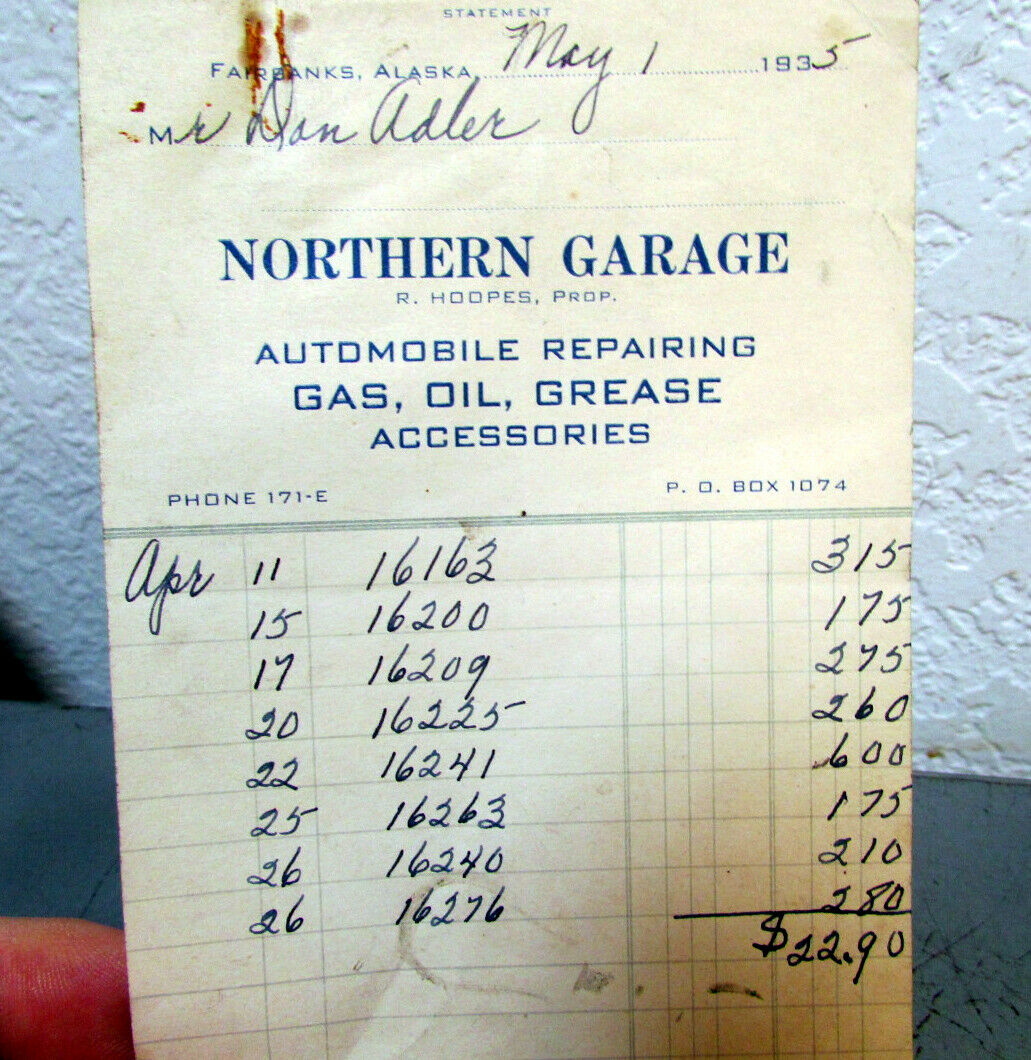 STATEMENT
FAIRBANKS, ALASKA, May 1 1935
Mr Don Adler
NORTHERN GARAGE
R. HOOPES, PROP.
AUTOMOBILE REPAIRING
GAS, OIL, GREASE
ACCESSORIES
PHONE 171-E P. O. BOX 1074
Apr 11 16163 315
15 16200 175
17 16209 275
20 16225 260
22 16241 600
25 16263 175
26 16240 210
26 16276 280
$22.90